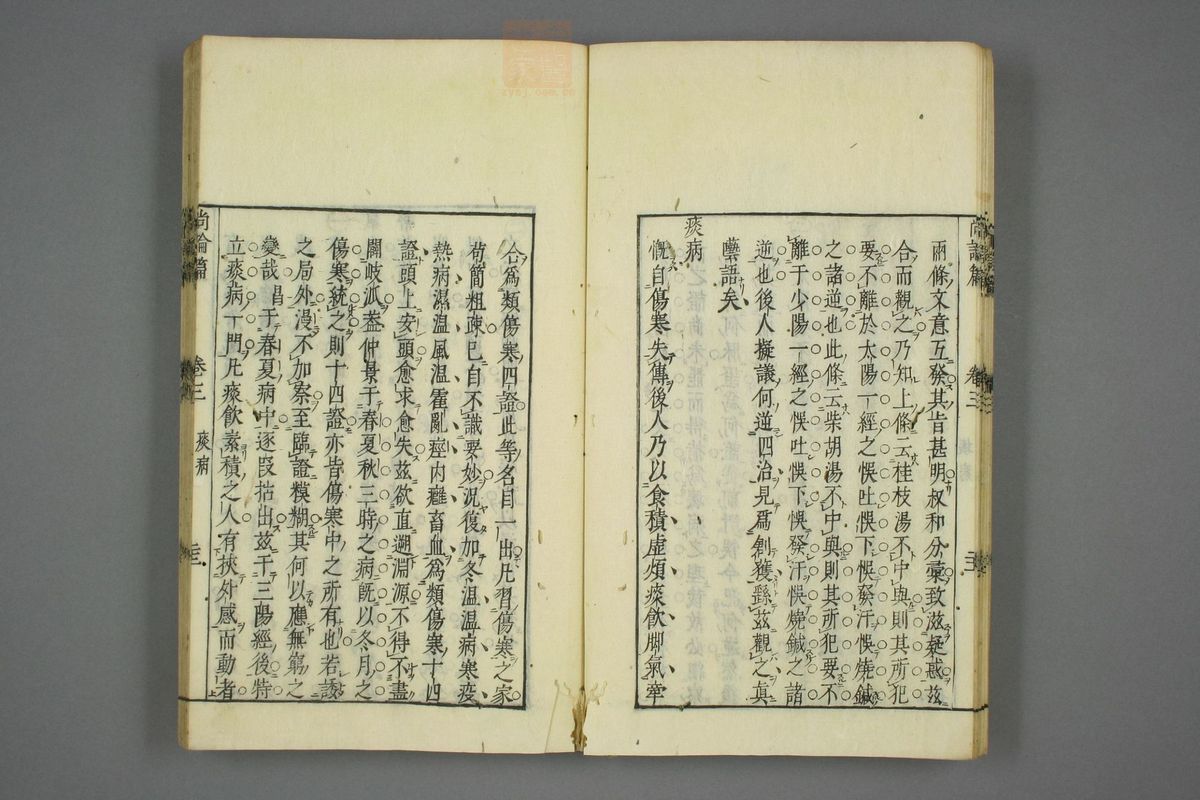 兩條文意互發其旨甚明叔和分彙致滋疑惑茲
合而觀之乃知上條云桂枝湯不中與則其所犯
要不離於太陽一經之悞吐悞下悞發汗悞燒鍼
之諸逆也此條云柴胡湯不中與則其所犯要不
離于少陽一經之悞吐悞下悞發汗悞燒鍼之諸
逆也後人擬議何逆四治見爲創獲繇茲觀之眞
囈語矣
痰病
慨自傷寒失傳後人乃以食積虛煩痰飲脚氣牽
合爲類傷寒四證此等名目一出凡習傷寒之家
苟簡粗疎已自不識要妙況復加冬温温病寒疫
熱病濕温風温霍亂痙内癰畜血爲類傷寒十四
證頭上安頭愈求愈失茲欲直遡淵源不得不盡
闢岐派葢仲景于春夏秋三時之病旣以冬月之
傷寒統之則十四證亦皆傷寒中之所有也若諉
之局外漫不加察至臨證模糊其何以應無窮之
變哉昌于春夏病中逐段拈出茲于三陽經後特
立痰病一門凡痰飲素積之人有挾外感而動者
尚論篇
卷三
痰病
尚論篇
卷三
zysj.com.cn